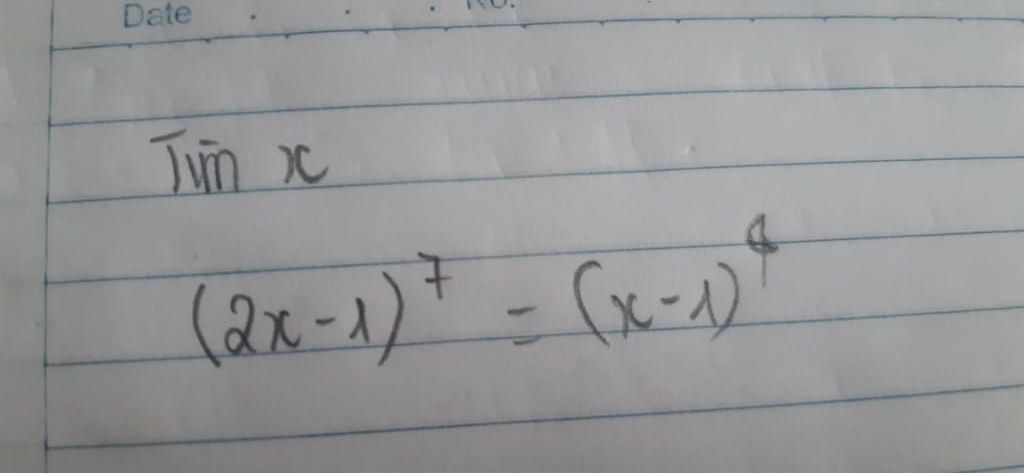 Date . . . No.
Tìm x
(2x-1)⁷ = (x-1)